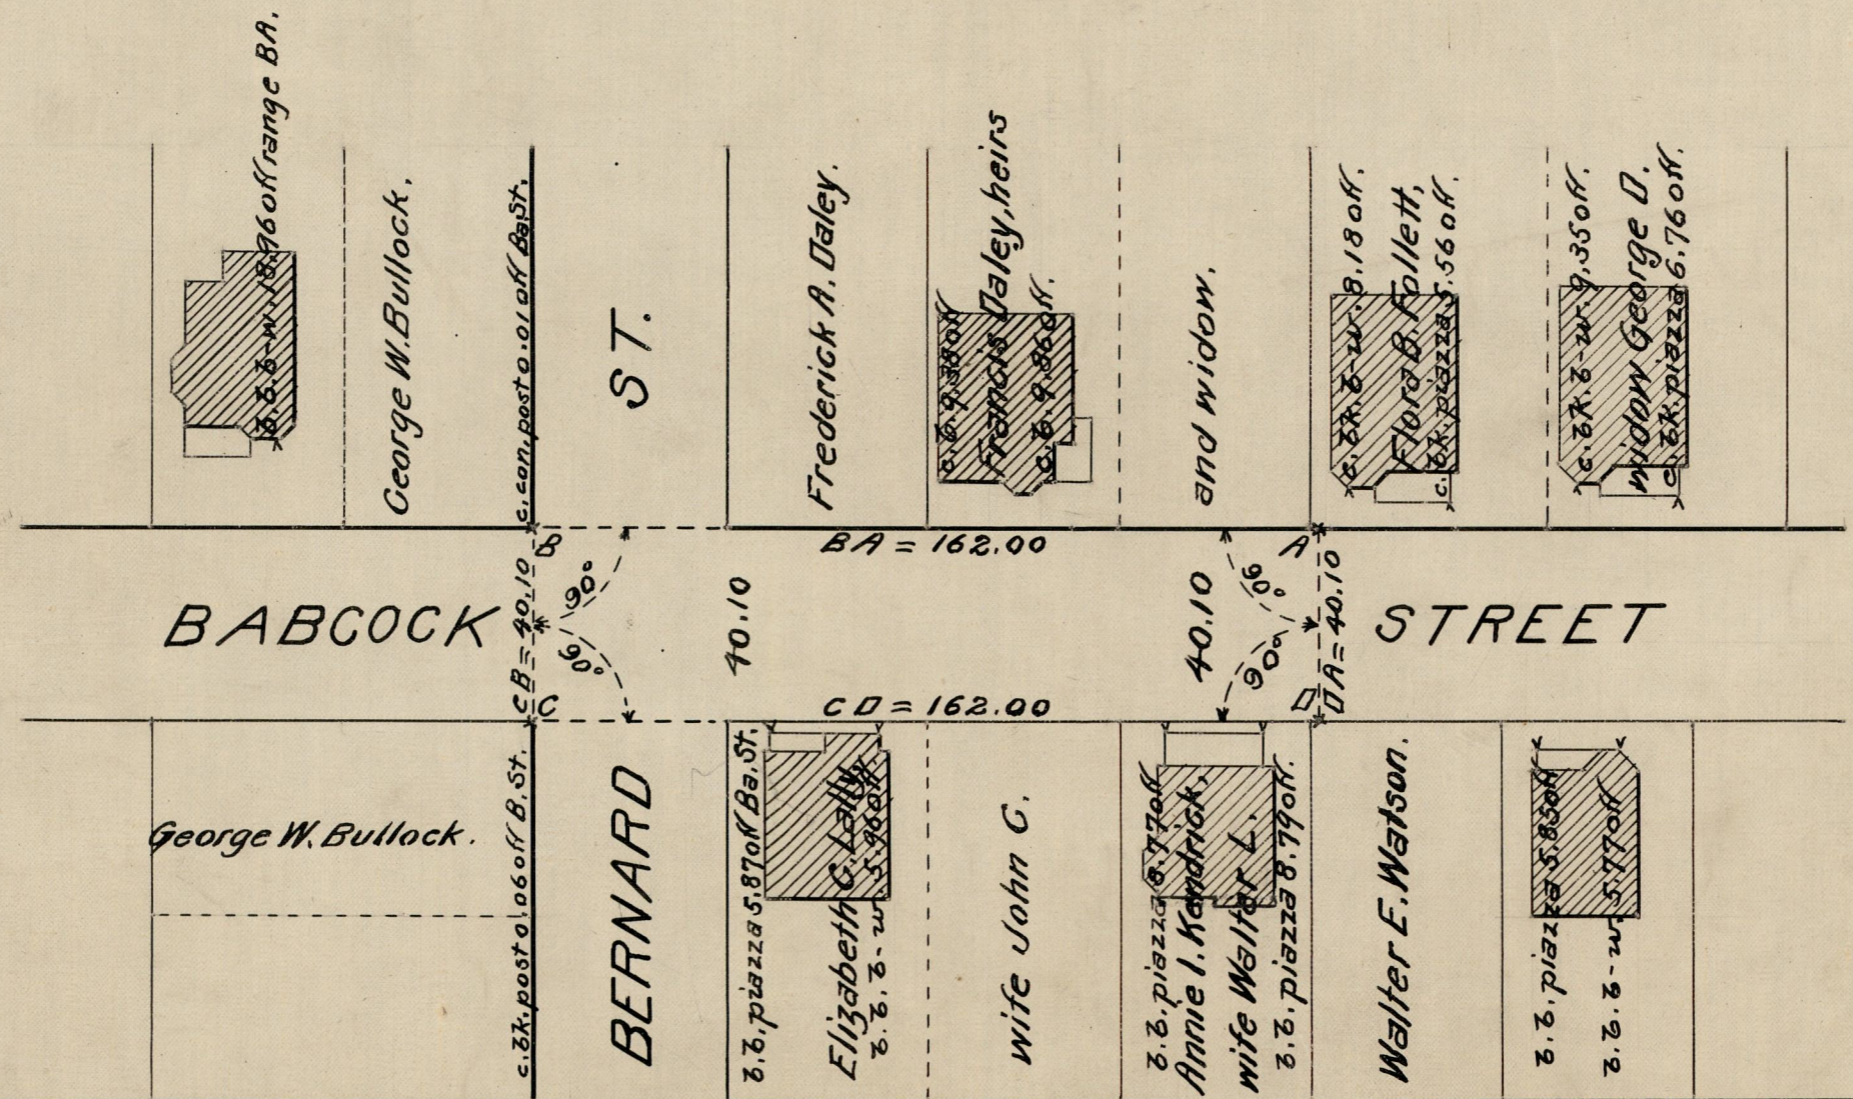 b.b.b-w.18.96 off range BA.
George W. Bullock.
c.con.post 0.01 off Ba.St.
ST.
Frederick A. Daley.
c.b. 9.38 off
Francis Daley, heirs
c.b. 9.86 off.
and widow.
c.bk.b-w. 8.18 off.
Flora B. Follett,
c.bk.piazza 5.56 off.
c.bk.b-w. 9.35 off.
widow George D.
c.bk.piazza 6.76 off.
B
BA = 162.00
A
BABCOCK
CB = 40.10
90°
90°
40.10
40.10
90°
90°
DA = 40.10
STREET
C
CD = 162.00
D
George W. Bullock.
c.bk.post 0.06 off B.St.
BERNARD
b.b.piazza 5.87 off Ba.St.
Elizabeth C. Lally,
b.b.b-w. 5.96 off
wife John C.
b.b.piazza 8.77 off
Annie I. Kendrick,
wife Walter L.
b.b.piazza 8.79 off.
Walter E. Watson.
b.b.piazza 5.85 off
b.b.b-w. 5.77 off